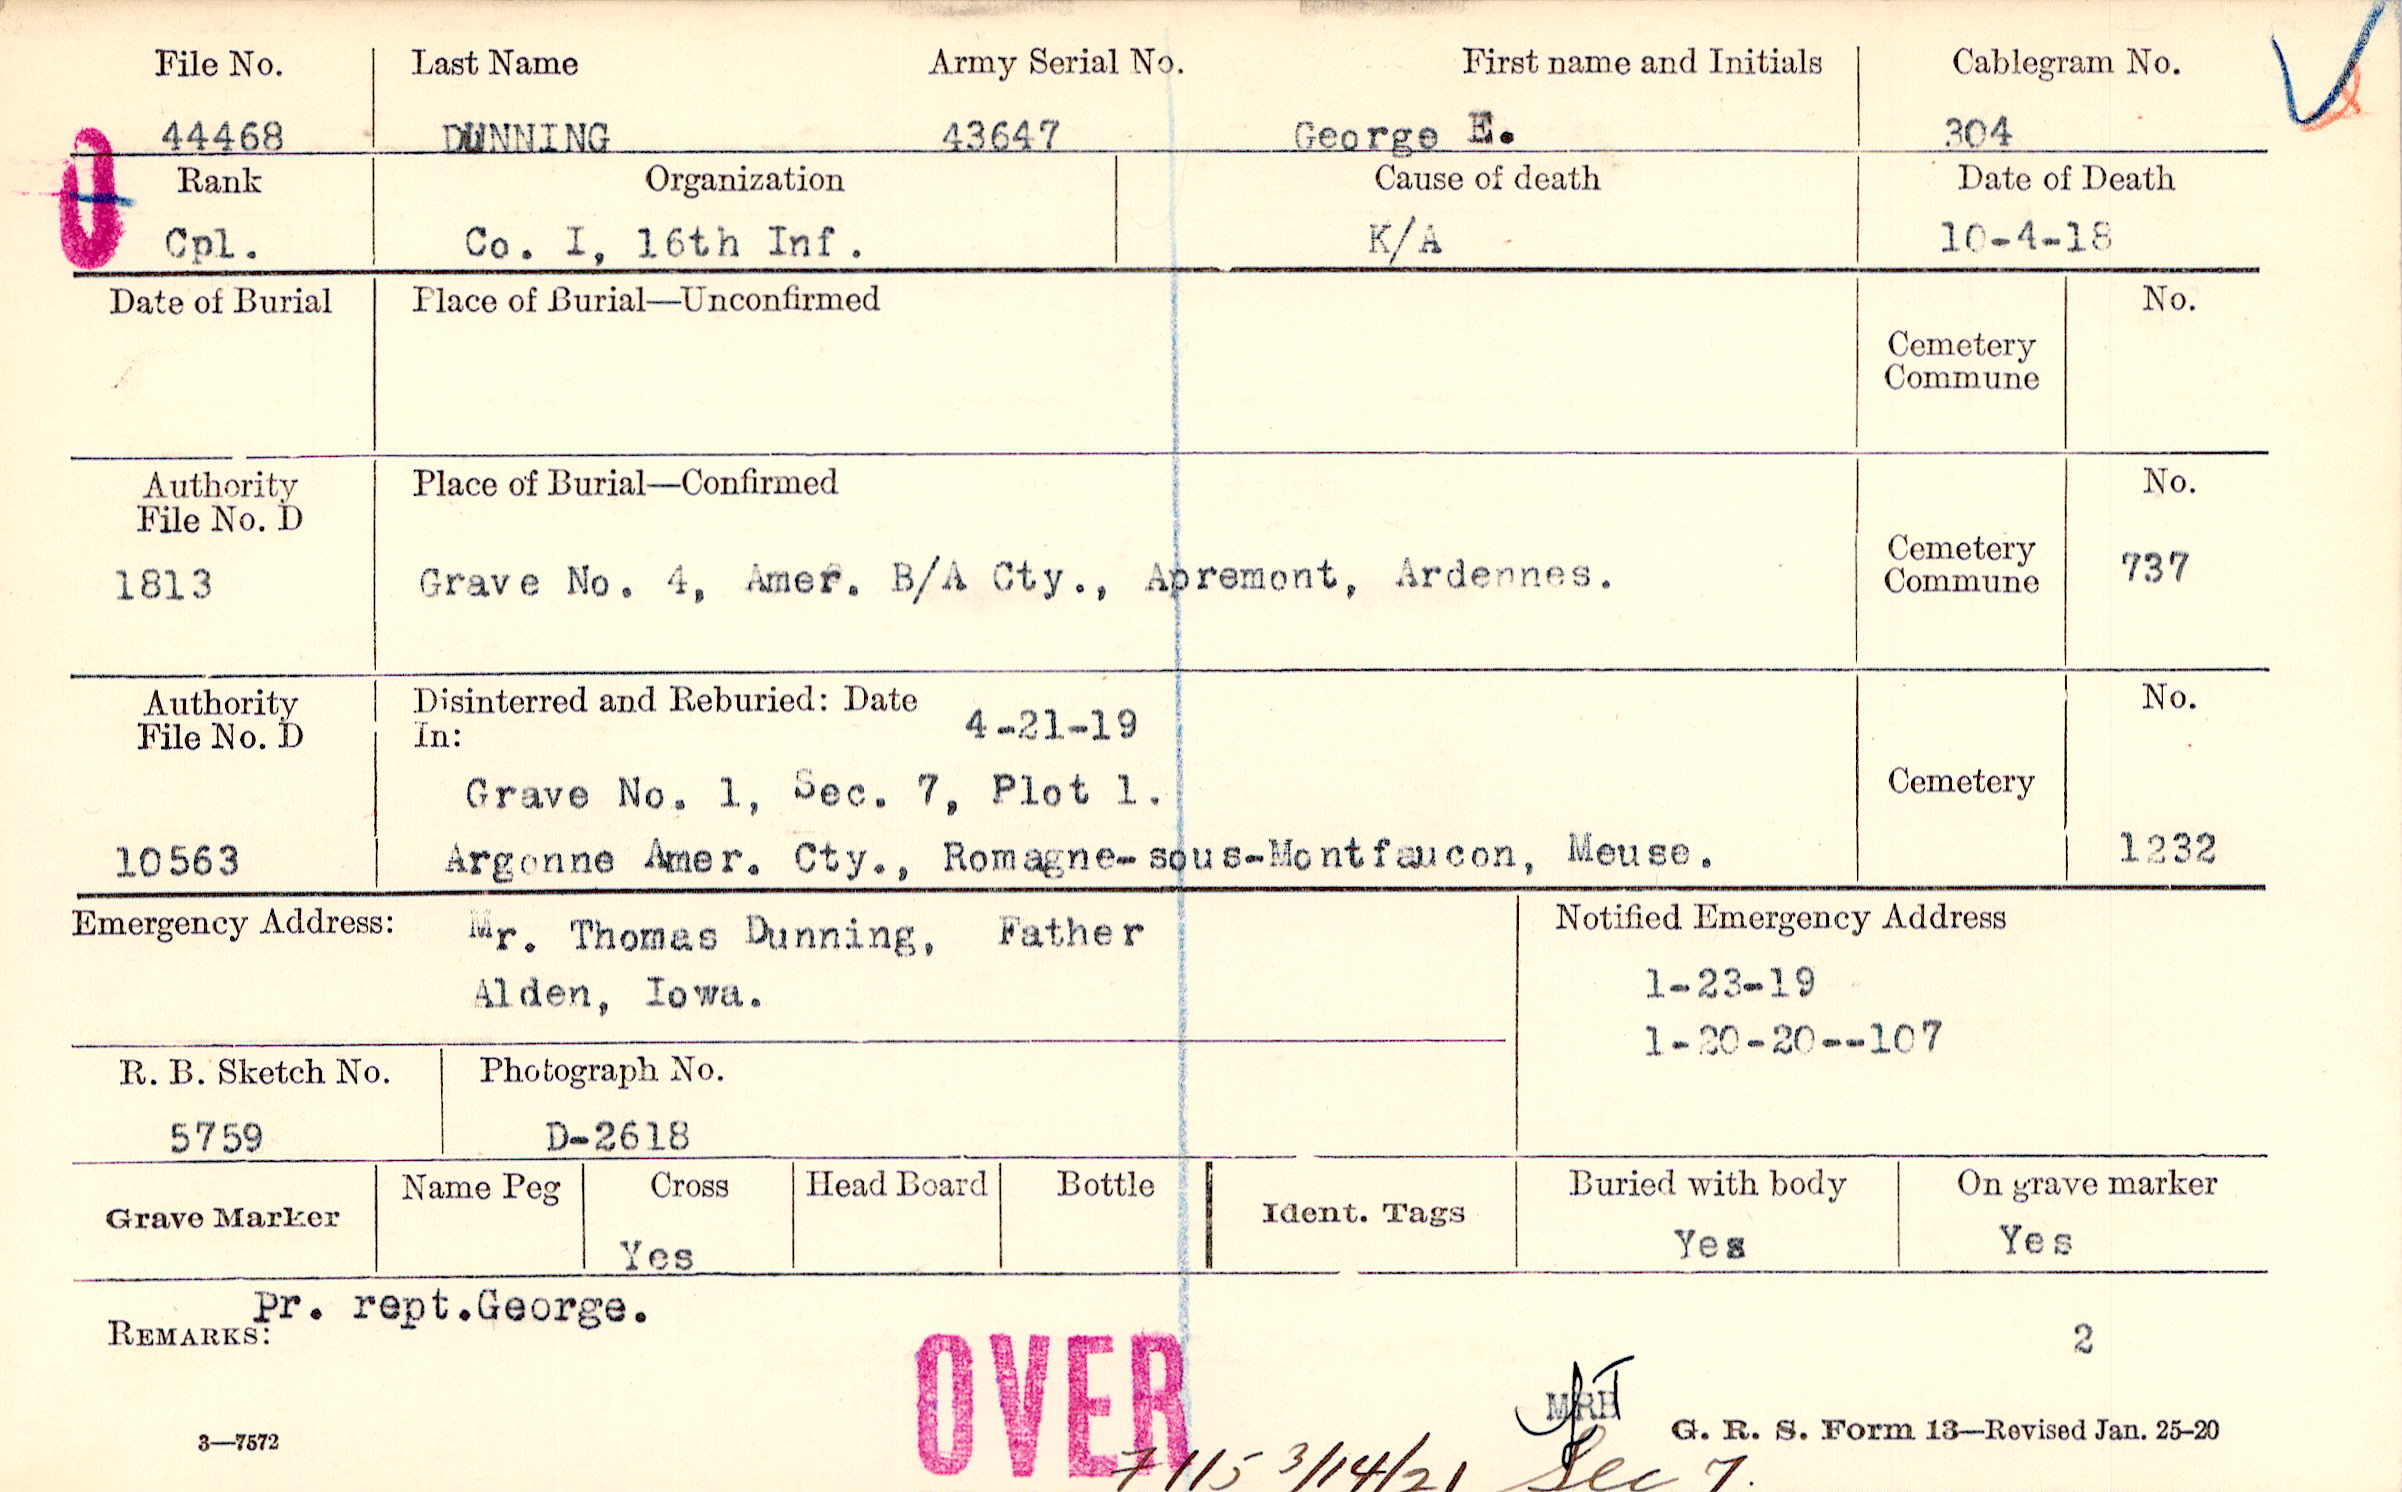 File No. Last Name Army Serial No. First name and Initials Cablegram No.
44468 DUNNING 43647 George E. 304
Rank Organization Cause of death Date of Death
Cpl. Co. I, 16th Inf. K/A 10-4-18
Date of Burial Place of Burial—Unconfirmed No.
Cemetery
Commune
Authority Place of Burial—Confirmed No.
File No. D
Cemetery
1813 Grave No. 4, Amer. B/A Cty., Apremont, Ardennes. Commune 737
Authority Disinterred and Reburied: Date No.
File No. D In: 4-21-19
Grave No. 1, Sec. 7, Plot 1. Cemetery
10563 Argonne Amer. Cty., Romagne-sous-Montfaucon, Meuse. 1232
Emergency Address: Mr. Thomas Dunning, Father Notified Emergency Address
Alden, Iowa. 1-23-19
1-20-20--107
R. B. Sketch No. Photograph No.
5759 D-2618
Grave Marker Name Peg Cross Head Board Bottle Ident. Tags Buried with body On grave marker
Yes Yes Yes
Pr. rept.George.
REMARKS: 2
OVER
MRH
3—7572 G. R. S. Form 13—Revised Jan. 25-20
7115 3/14/21 Sec 7.